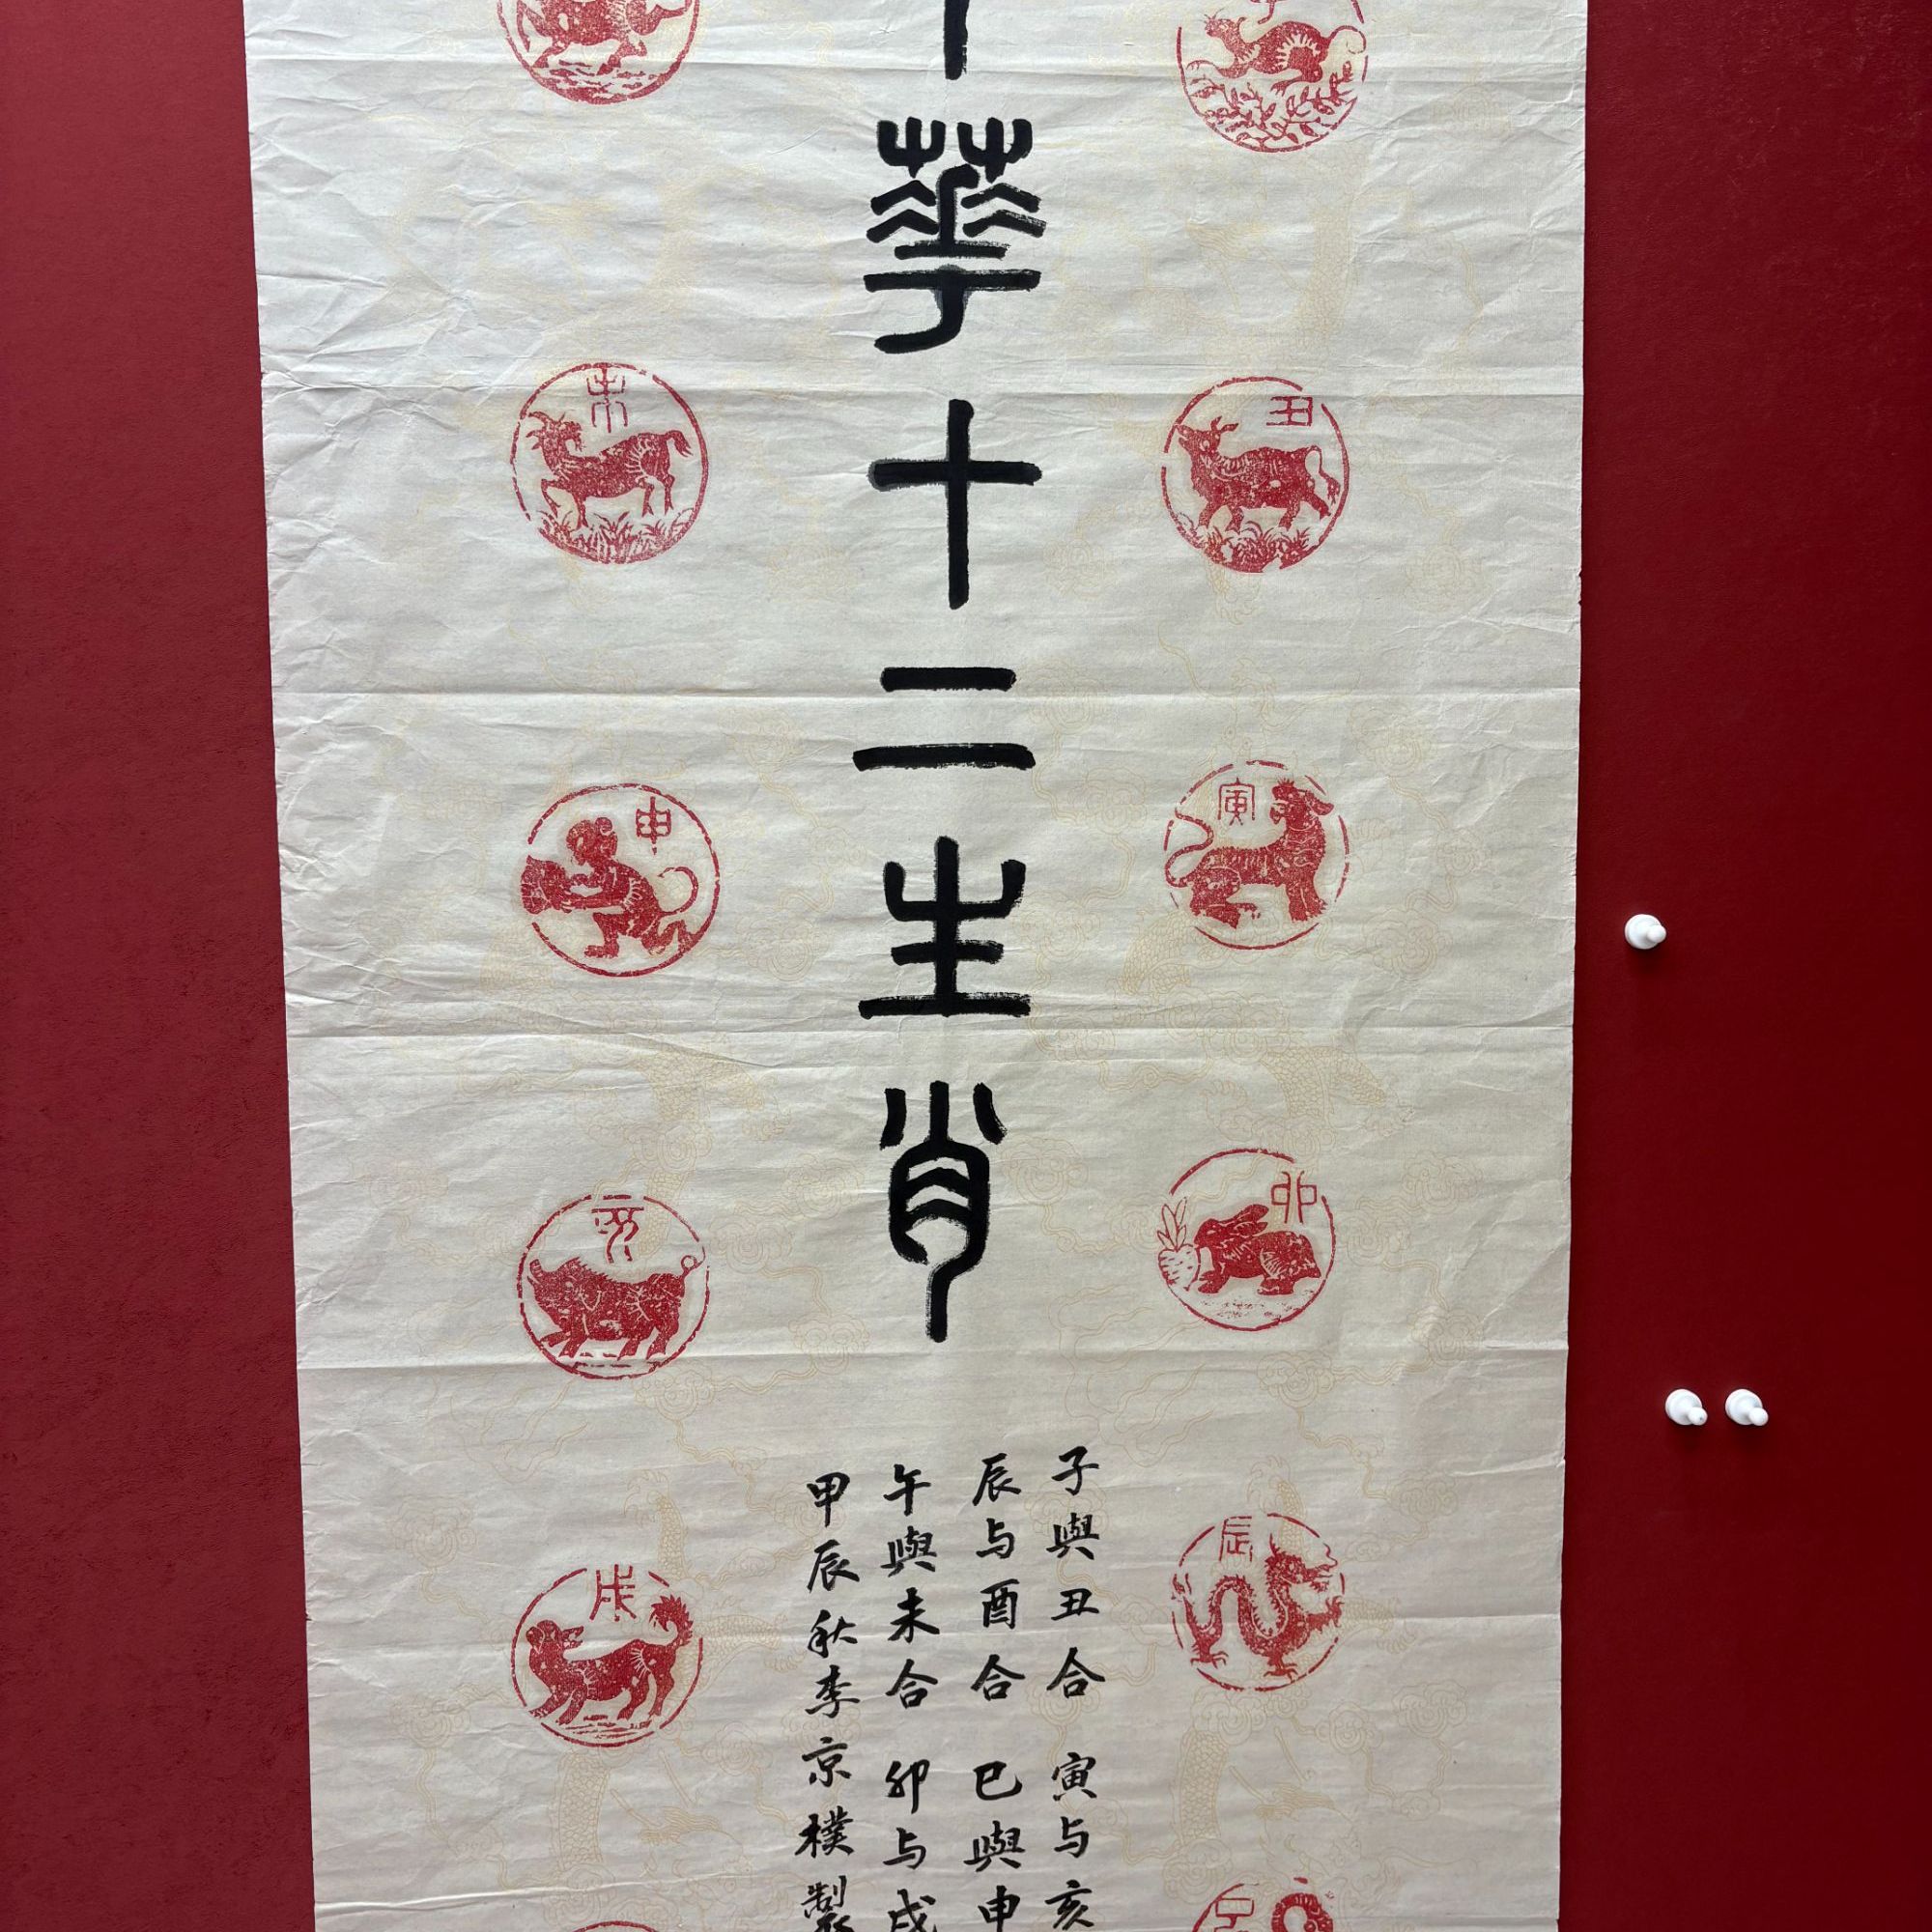 華十二生肖
子與丑合 寅与亥
辰与酉合 巳與申
午與未合 卯与戌
甲辰秋李京樸製
丑
寅
卯
辰
未
申
亥
戌